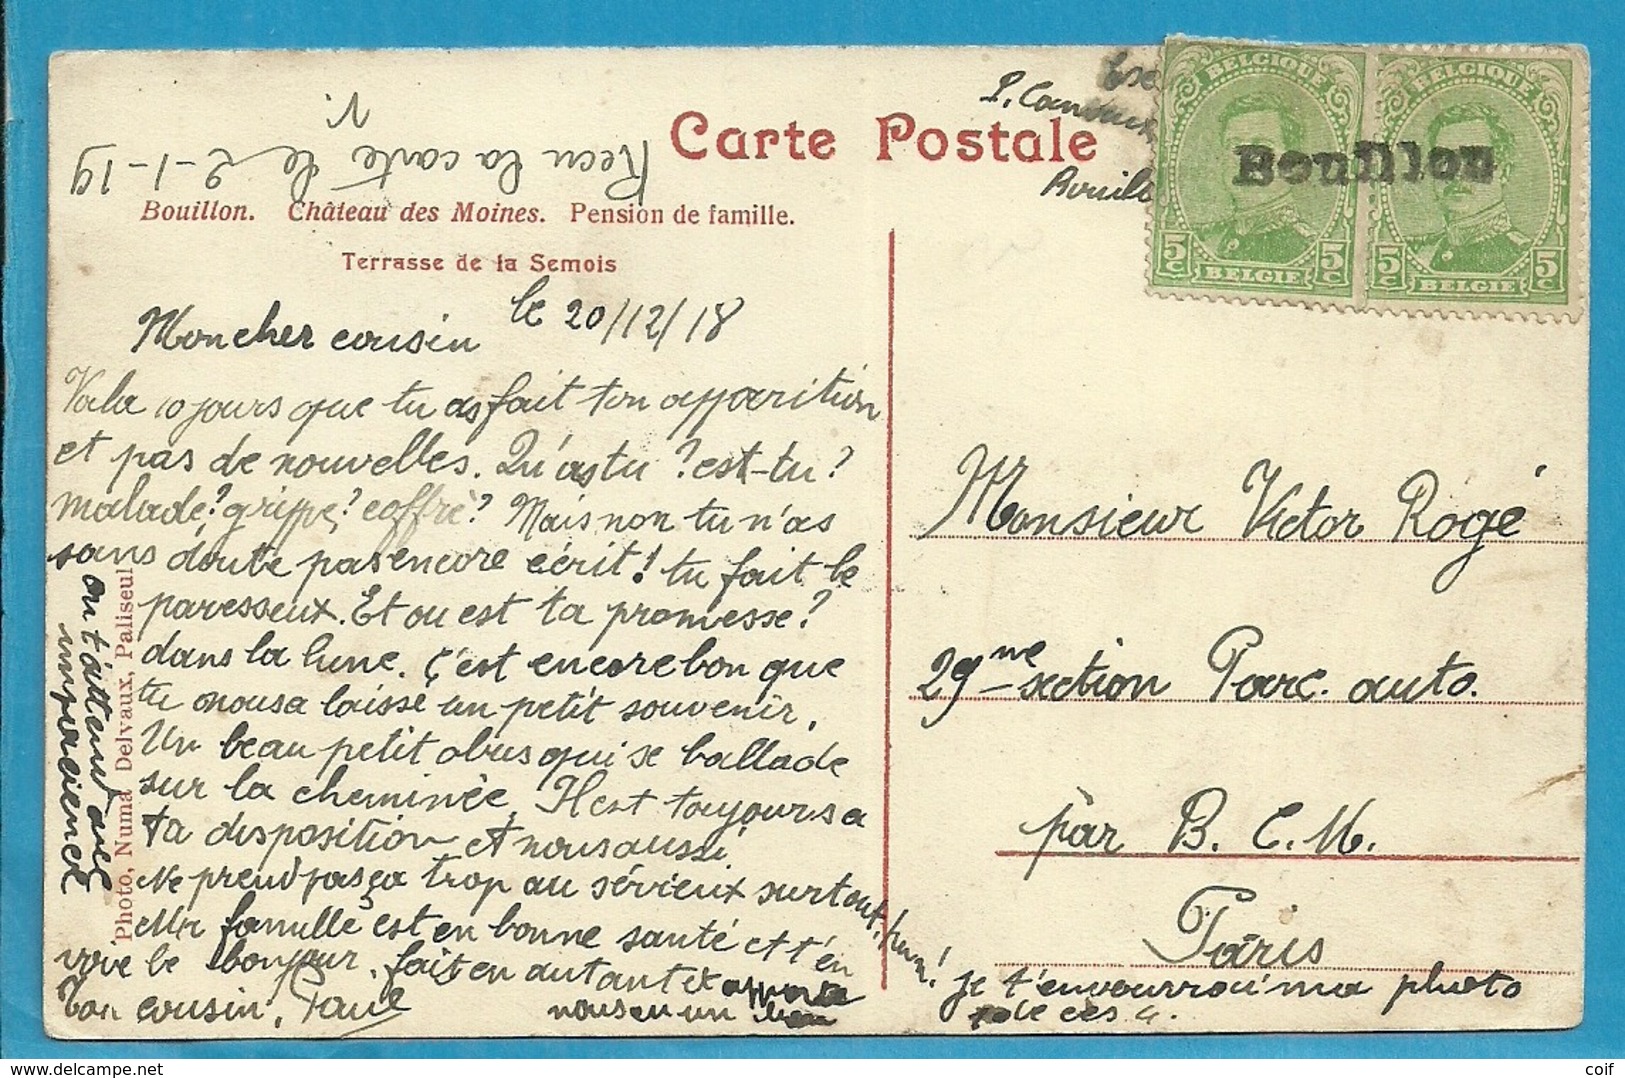 Carte Postale
Reçu la carte le 2-1-19
V.
Bouillon. Château des Moines. Pension de famille.
Terrasse de la Semois
BELGIQUE
BELGIQUE
Bouillon
5 C
5 C
5 C
5 C
BELGIE
BELGIE
le 20/12/18
Mon cher cousin
Vala 10 jours que tu as fait ton apparition
et pas de nouvelles. Qu'as tu ? est-tu ?
malade? grippe? coffré? Mais non tu n'as
sans doute pas encore écrit! tu fait le
paresseux. Et ou est ta promesse?
dans la lune. C'est encore bon que
tu nous a laissé un petit souvenir.
Un beau petit obus qui se ballade
sur la cheminée. Il est toujours a
ta disposition et nous aussi.
Ne prend pas ça trop au sérieux surtout, hum!
Ma famille est en bonne santé et t'en
voie le bonjour, fait en autant et apporte
nous en un
Ton cousin, Paul
je t'enverrai ma photo
on t'attend avec
impatience
Photo, Numa Delvaux, Paliseul
Monsieur Victor Rogé
29me section Parc. auto.
par B. C. M.
Paris
coif
www.delcampe.net